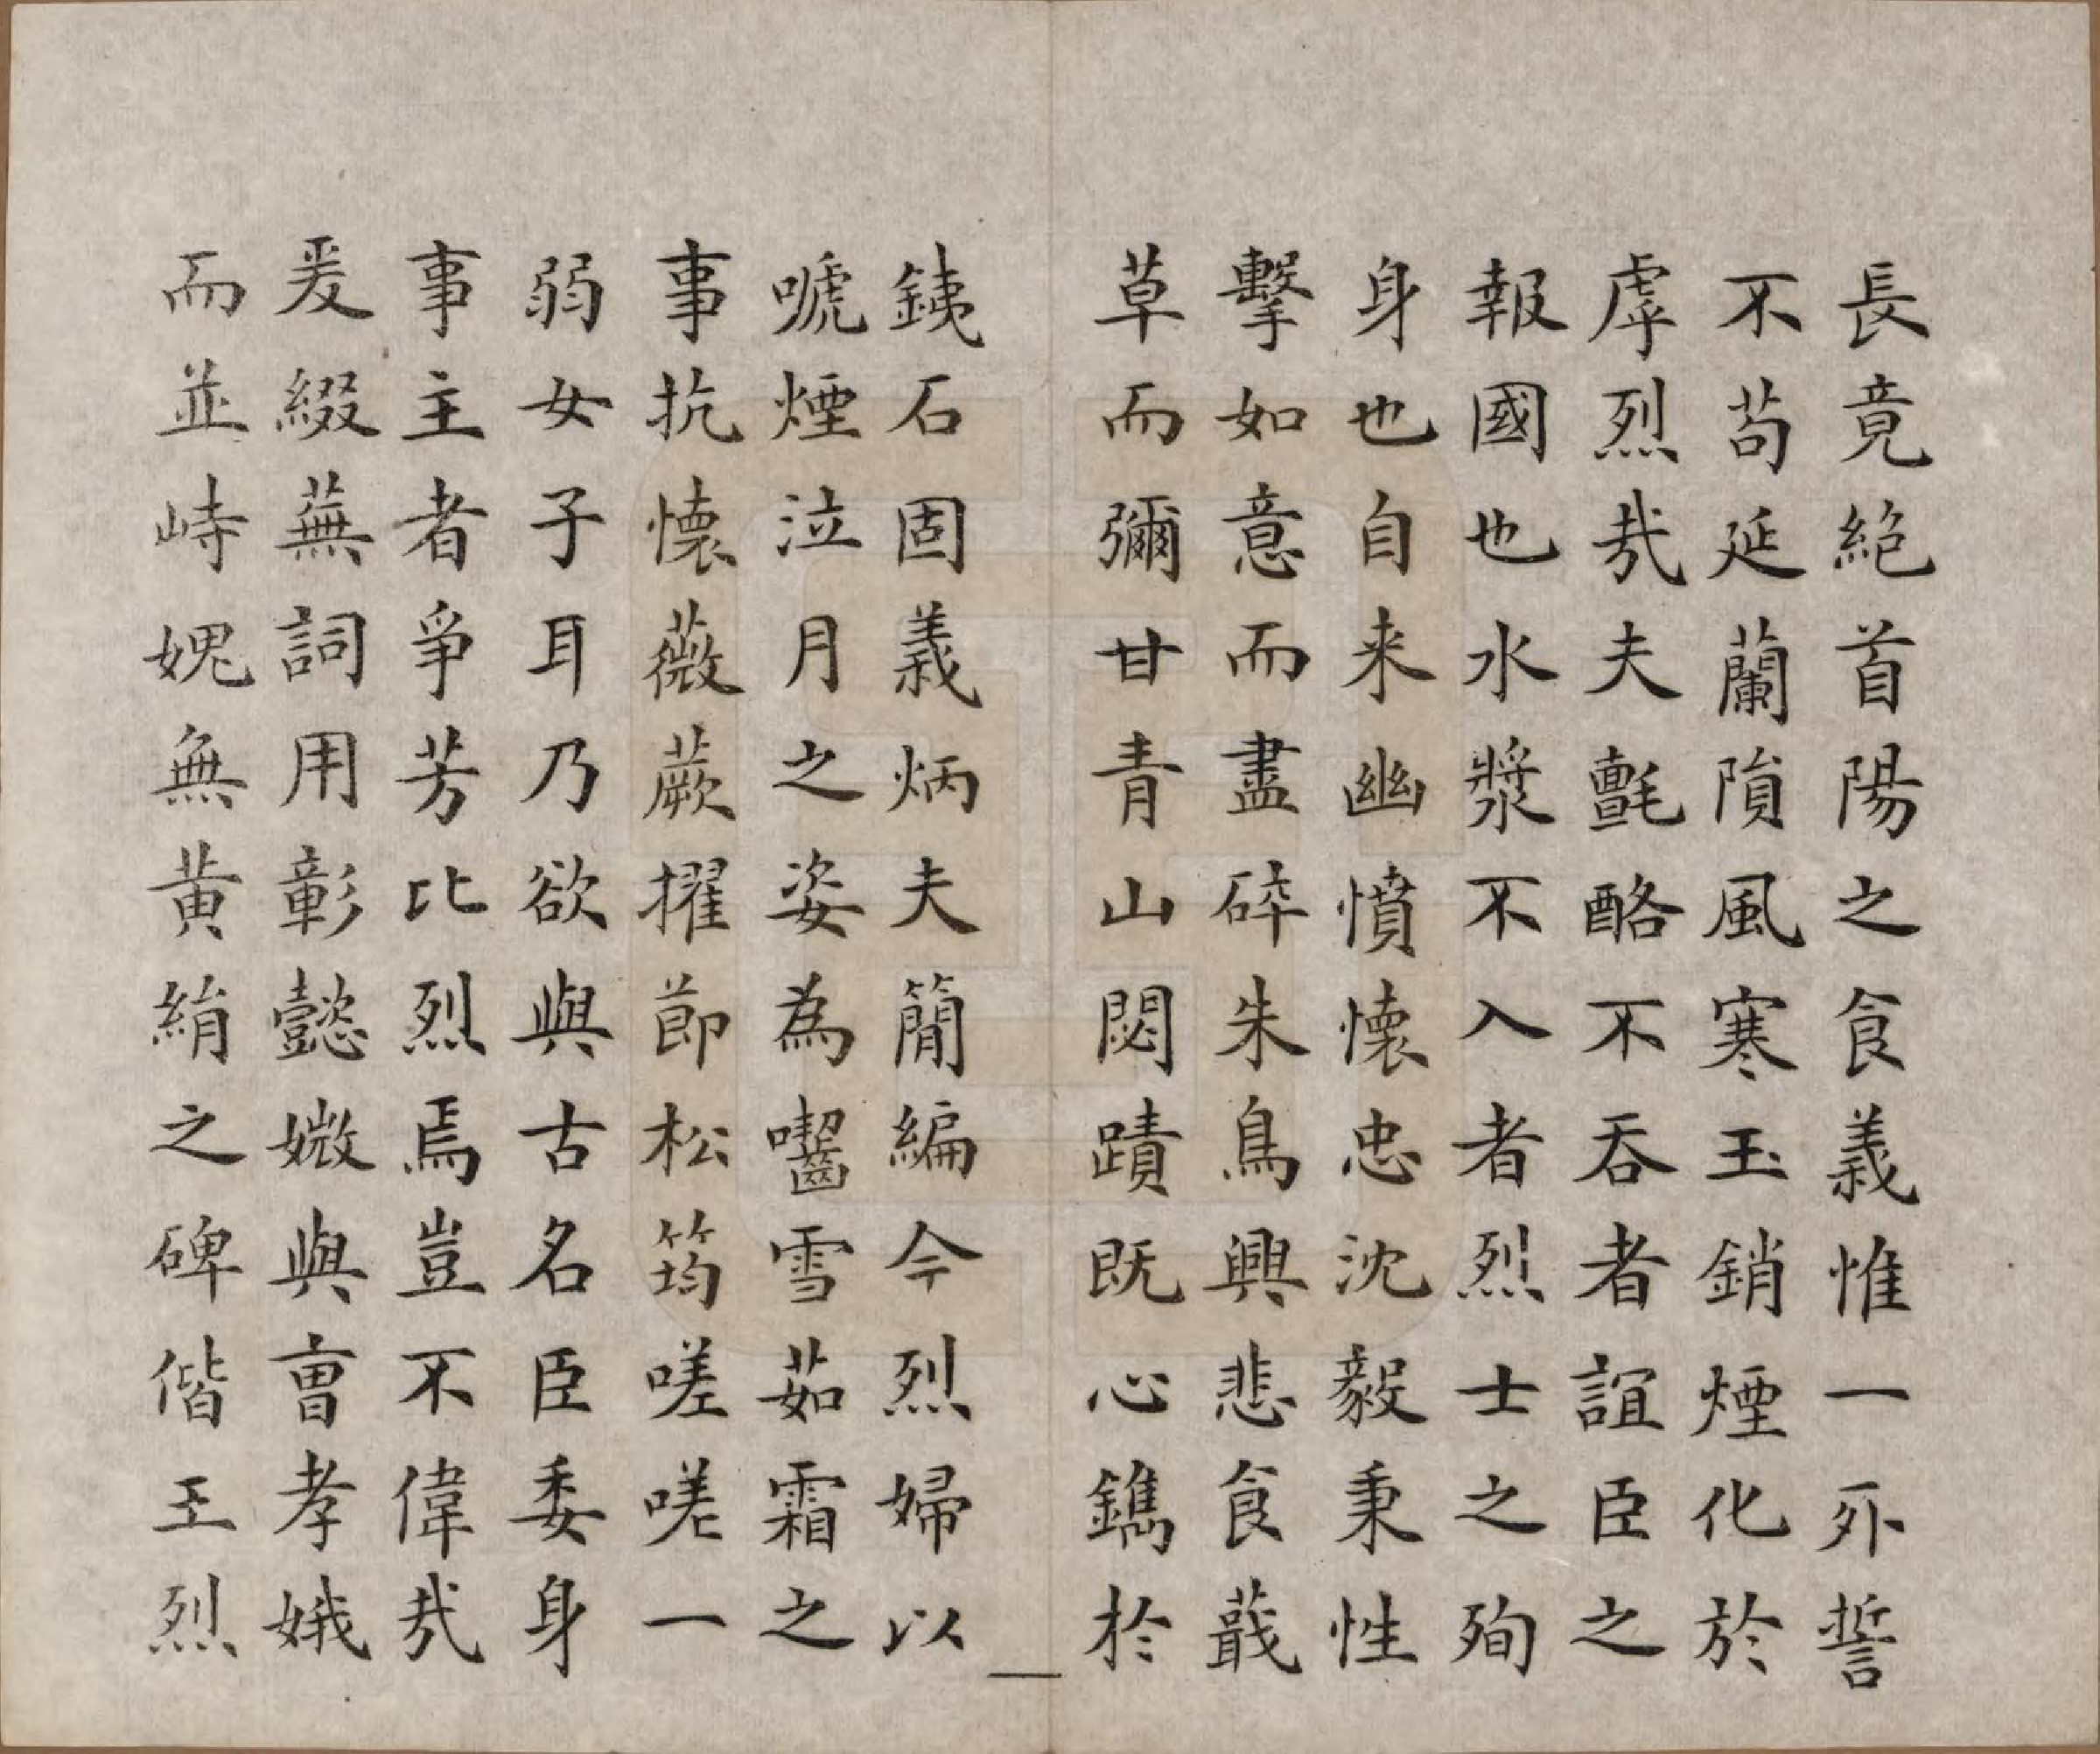 長竟絕首陽之食義惟一死誓
不苟延蘭隕風寒玉銷煙化於
虖烈哉夫氈酪不吞者誼臣之
報國也水漿不入者烈士之殉
身也自来幽憤懷忠沈毅秉性
擊如意而盡碎朱鳥興悲食蕺
草而彌甘青山閟蹟既心鐫於
銕石固義炳夫簡編今烈婦以
嗁煙泣月之姿為囓雪茹霜之
事抗懷薇蕨擢節松筠嗟嗟一
弱女子耳乃欲與古名臣委身
事主者爭芳比烈焉豈不偉哉
爰綴蕪詞用彰懿媺與曹孝娥
而並峙媿無黄絹之碑偕王烈